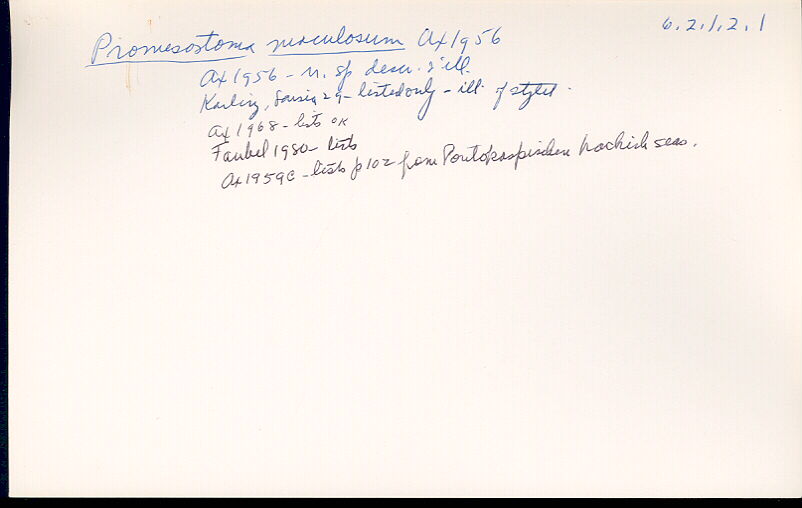 6.2.1.2.1
Promesostoma maculosum Ax 1956
Ax 1956 - n. sp descr. & ill.
Karling, Sarsia 29 - listed only - ill. of stylet.
Ax 1968 - lists OK
Faubel 1980 - lists
Ax 1959C - lists p 102 from Pontokaspischen brackish seas.